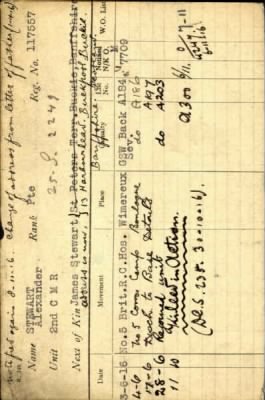 Notified again 8.11.16 Change of address from letter of father
Name STEWART Alexander Rank Pte Reg. No. 117557
Unit 2nd C M R 25-S 2249
Next of Kin James Stewart, St Peters Terr. Buckie, Banffshire
address is now, 313 Harbourhead, Buckpool, Buckie
Banffshire
Date Movement Place Casualty List No. Notified N/K O. W.O. List
3-6-16 No.5 Brit.R.C.Hos. Wimereux GSW Back A184 7709
Sev.
4-6 No 5 Conv. Camp Boulogne do A186
17-6 Disch to Base Details A197
28-6 Rejoined unit do A203
11 10 Killed in Action. A300 6/11
(D.C.S. 258. 30-10-16).